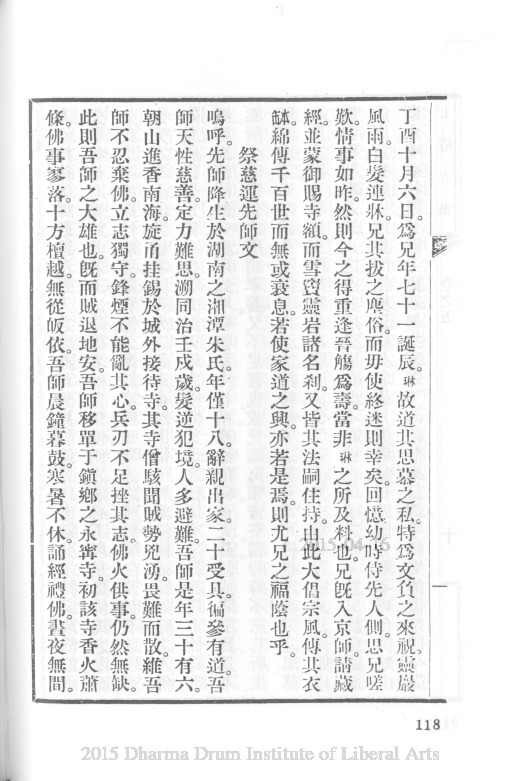 丁酉十月六日。爲兄年七十一誕辰。琳故道其思慕之私。特爲文負之來祝。靈巖
風雨。白髮連牀。兄其拔之塵俗。而毋使終迷則幸矣。回憶幼時侍先人側。思兄嗟
歎。情事如昨。然則今之得重逢晉觴爲壽。當非琳之所及料也。兄旣入京師。請藏
經。並蒙御賜寺額。而雪竇靈岩諸名刹。又皆其法嗣住持。由此大倡宗風。傳其衣
缽。綿傳千百世而無或衰息。若使家道之興。亦若是焉。則尤兄之福蔭也乎。
祭慈運先師文
嗚呼。先師降生於湖南之湘潭朱氏。年僅十八。辭親出家。二十受具。徧參有道。吾
師天性慈善。定力難思。溯同治壬戌歲。髮逆犯境。人多避難。吾師是年三十有六。
朝山進香南海。旋甬挂錫於城外接待寺。其寺僧駭聞賊勢兇湧。畏難而散。維吾
師不忍棄佛。立志獨守。鋒煙不能亂其心。兵刃不足挫其志。佛火供事。仍然無缺。
此則吾師之大雄也。旣而賊退地安。吾師移單于鎭鄉之永寗寺。初該寺香火蕭
條。佛事寥落。十方檀越。無從皈依。吾師晨鐘暮鼓。寒暑不休。誦經禮佛。晝夜無間。
118
2015 Dharma Drum Institute of Liberal Arts